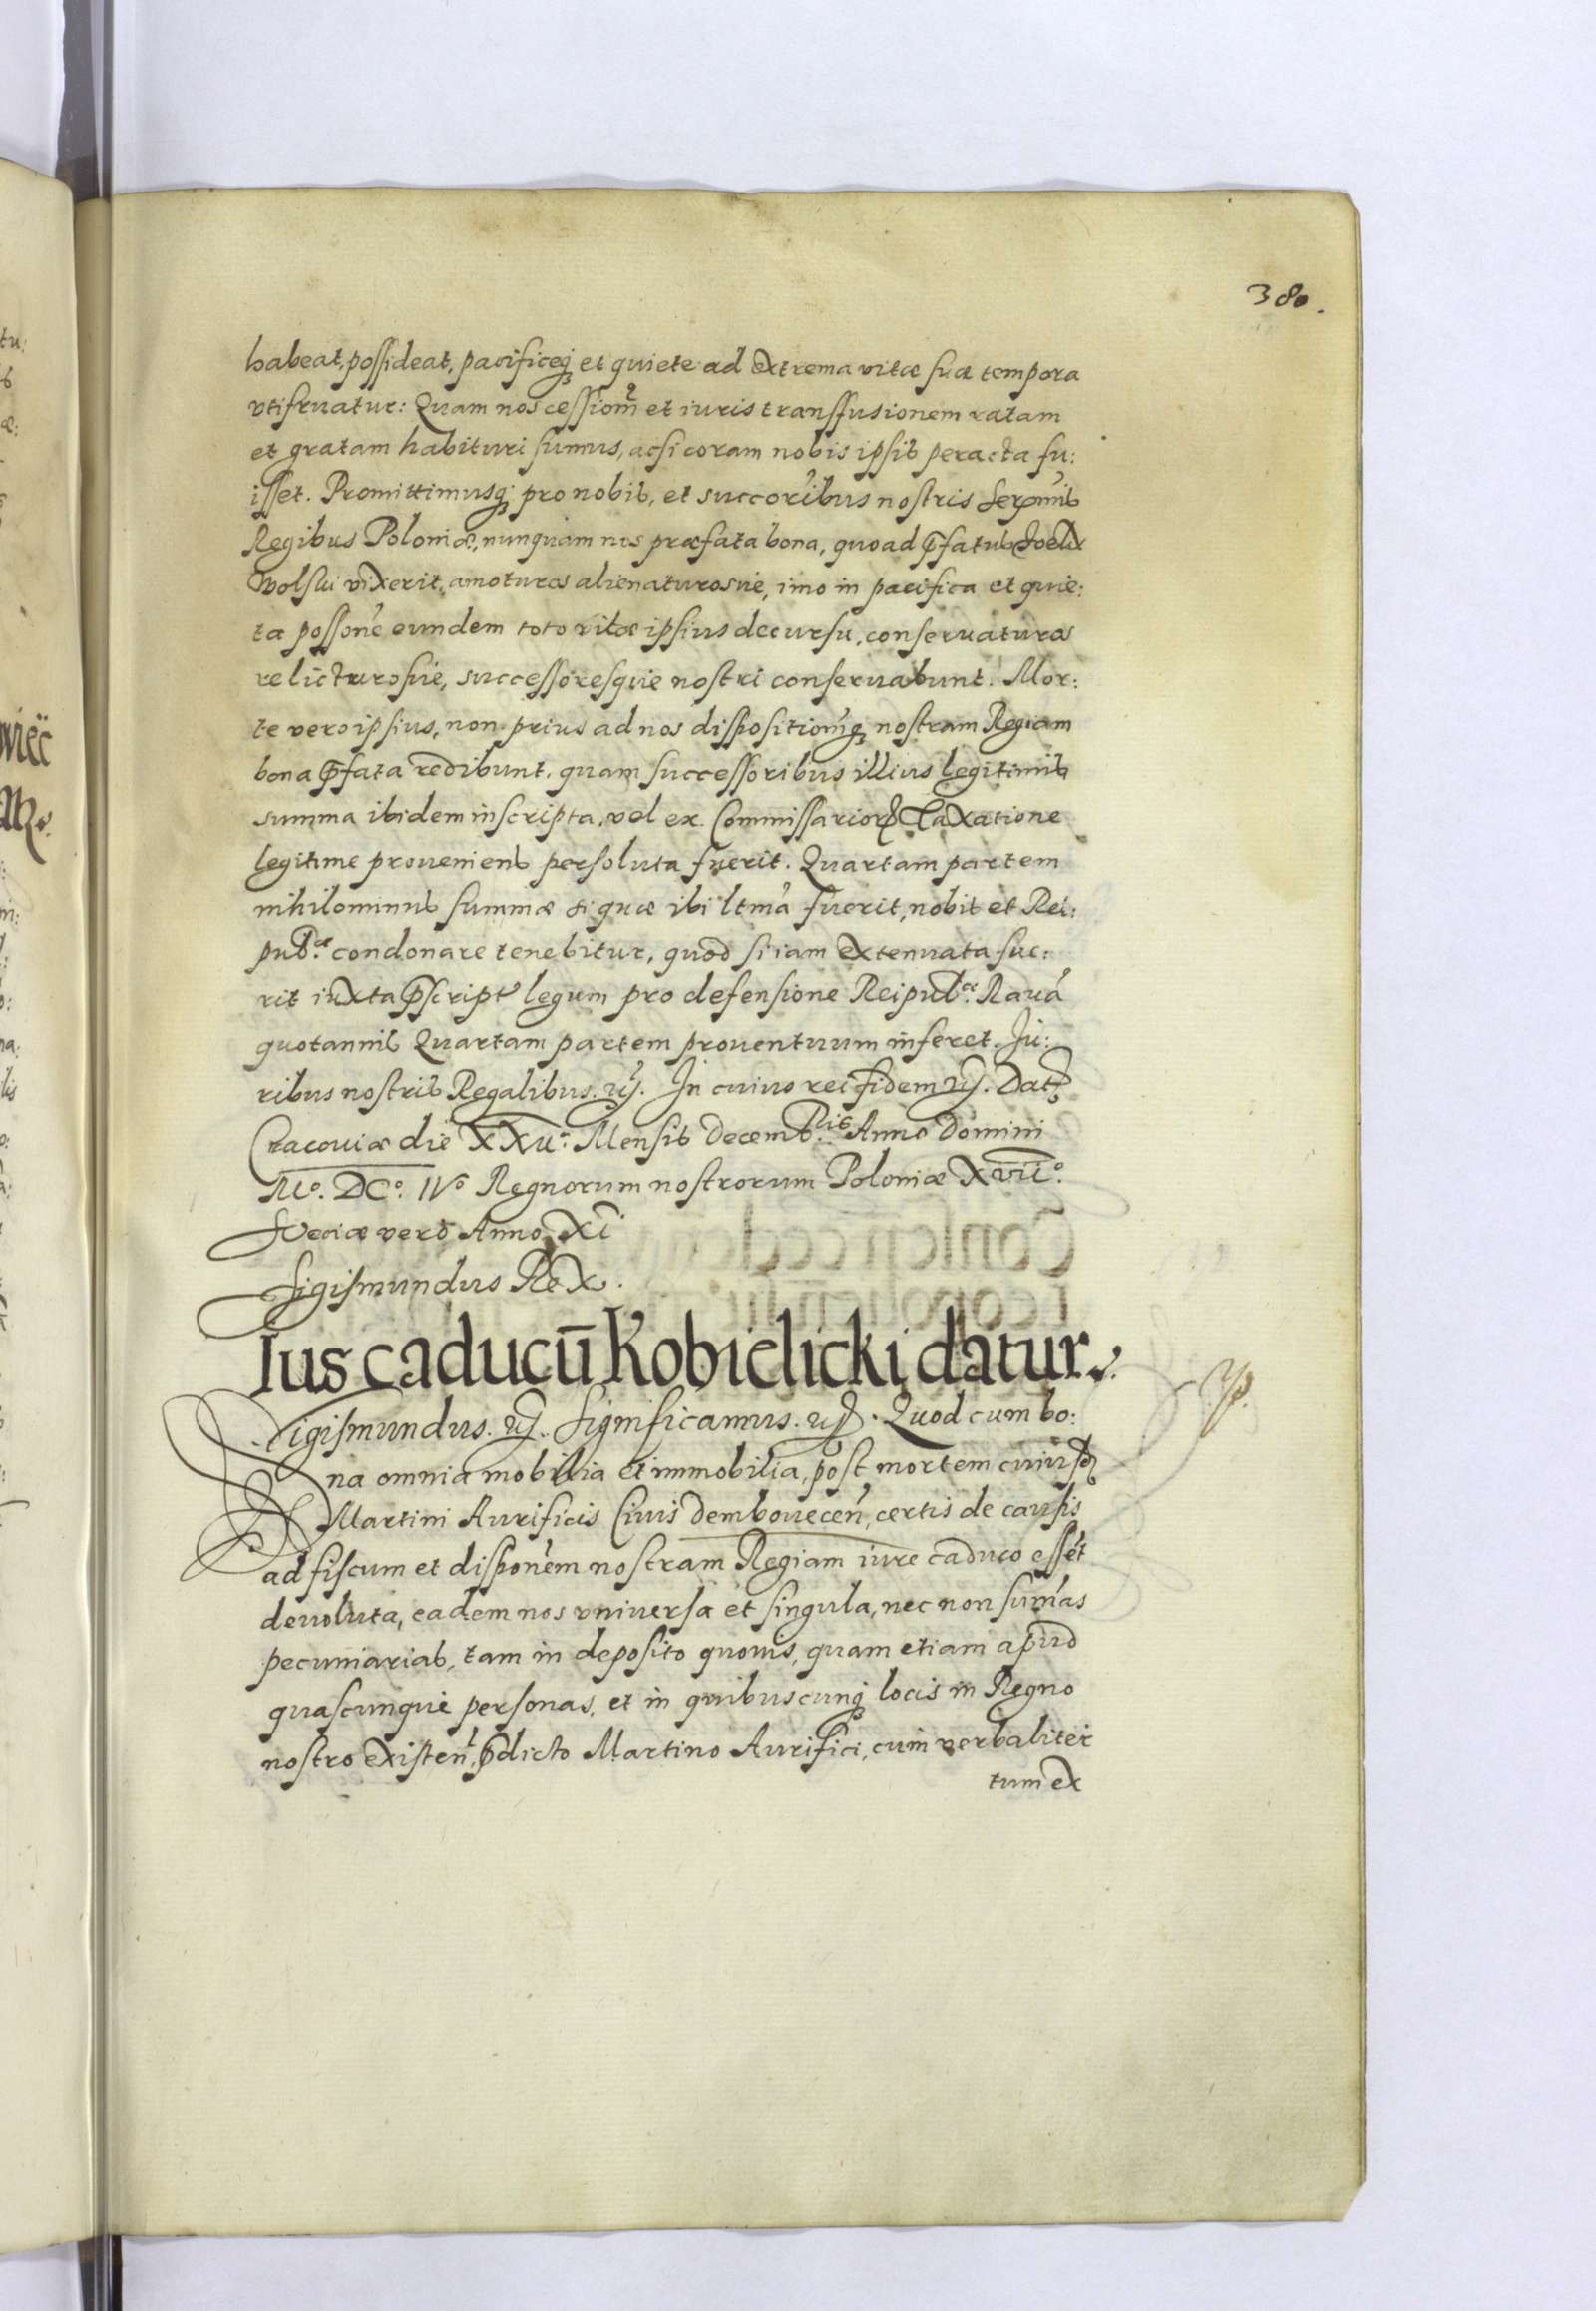 380.
habeat, possideat, pacificeq; et quiete ad extrema vitæ suæ tempora
vtifruatur: Quam nos cessionẽ et iuris transfusionem ratam
et gratam habituri sumus, acsi coram nobis ipsis peracta fu:
isset. Promittimusq; pro nobis, et succoribus nostris
Regibus Poloniæ, nunquam nos præfata bona, quoad p̃fatus
Wolski vixerit, amoturos alienaturosue, imo in pacifica et quie:
ta possone eundem toto vitæ ipsius decursu, conseruaturos
relicturosue, successoresque nostri conseruabunt. Mor:
te vero ipsius, non prius ad nos dispositionẽq; nostram Regiam
bona p̃fata redibunt, quam successoribus illius legitimis
summa ibidem inscripta, vel ex Commissarior̃ Taxatione
legitime proueniens persoluta fuerit. Quartam partem
nihilominus summæ si quæ ibi ltma fuerit, nobis et Rei:
pub.æ condonare tenebitur, quod si iam extenuata fue:
rit iuxta p̃script legum pro defensione Reipub.æ Rauã
quotannis Quartam partem prouentuum inferet. Iu:
ribus nostris Regalibus. In cuius rei fidem. Dat
Cracouiæ die XXII. Mensis Decemb.ris Anno Domini
M.o DC.o IV.o Regnorum nostrorum Poloniæ XVII.o
Sveciæ vero Anno XI
Sigismundus Rex.
Ius caducũ Kobielicki datur.
Sigismundus. Significamus. Quod cum bo:
na omnia mobilia et immobilia, post mortem cuiusd
Martini Aurificis Ciuis Dembouecen, certis de causis
ad fiscum et disponem nostram Regiam iure caduco essẽt
deuoluta, eadem nos vniuersa et singula, nec non sum̃as
pecuniarias, tam in deposito quouis, quam etiam apud
quascunque personas, et in quibuscunq; locis in Regno
nostro existen, p̃dicto Martino Aurifici, cum verbaliter
tum ex